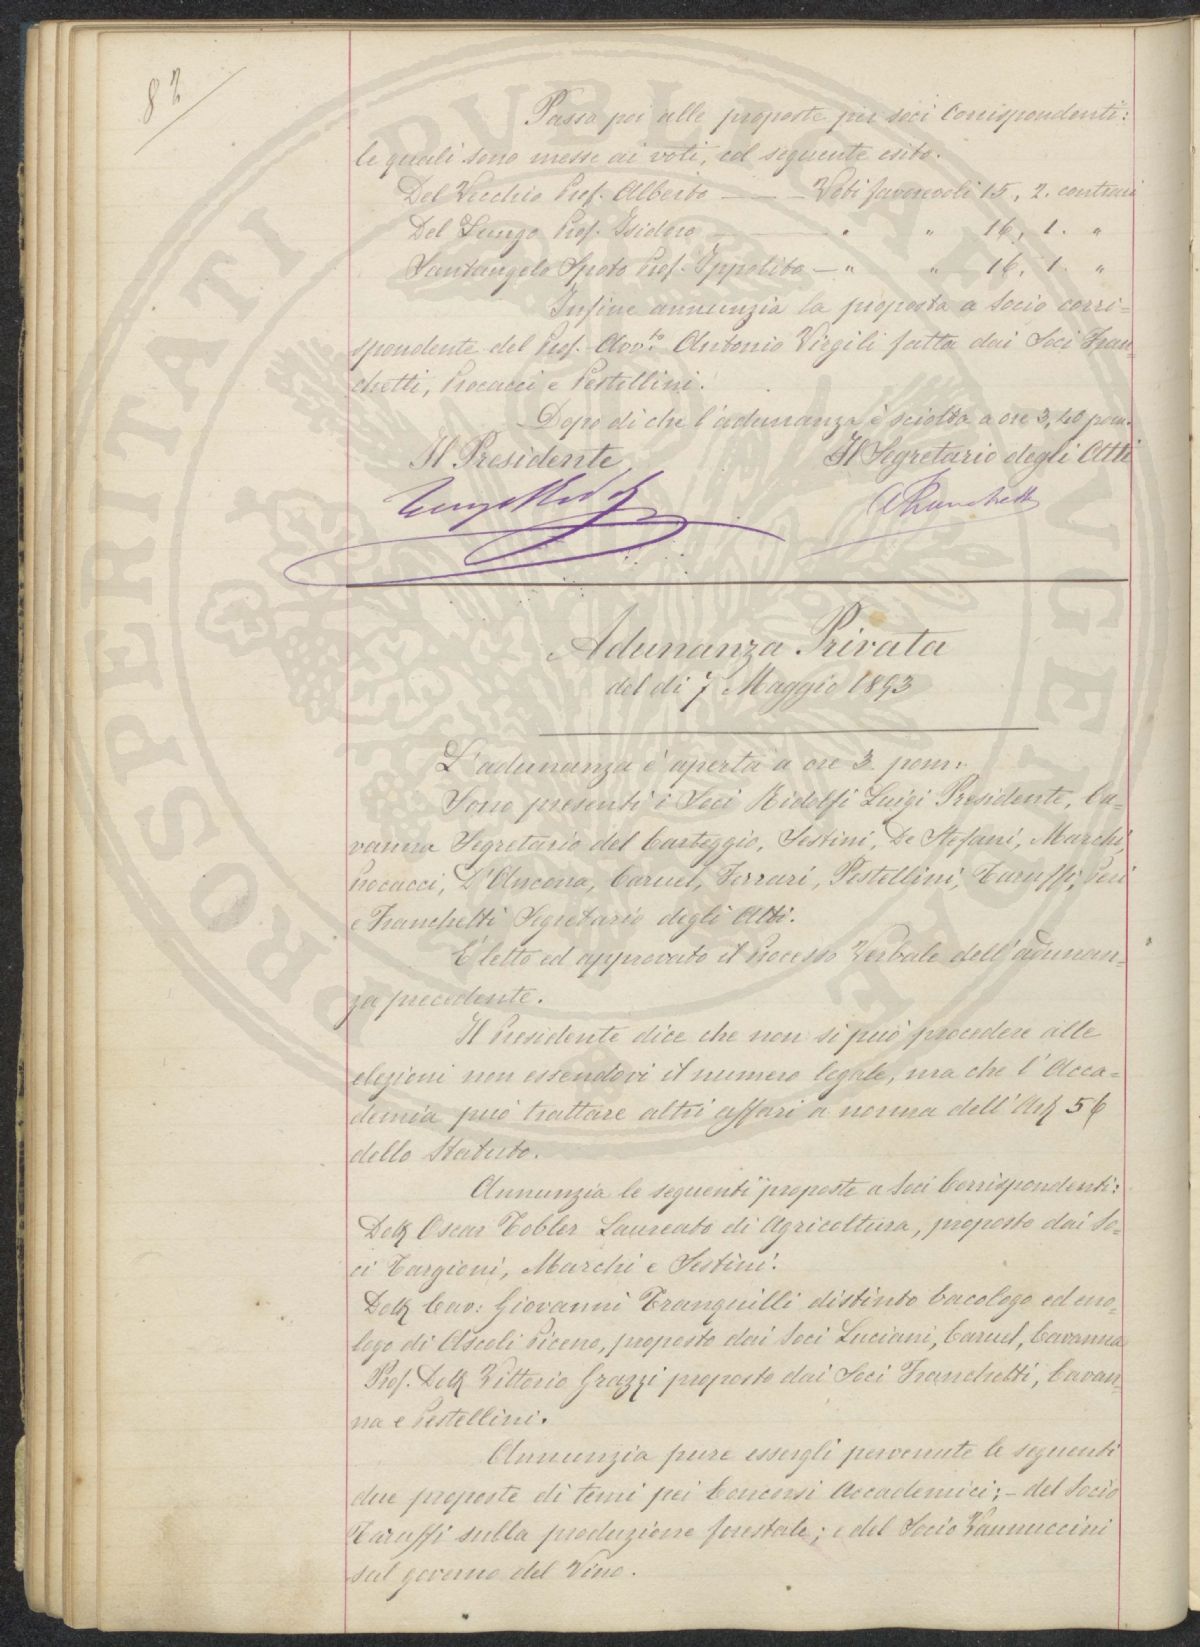 82
Passa poi alle proposte pei soci Corrispondenti:
le quali sono messe ai voti, col seguente esito.
Del Vecchio Prof. Alberto — Voti favorevoli 15, 2. contrari
Del Lungo Prof. Isidoro — " " 16, 1. "
Santangelo Spoto Prof. Ippolito — " " 16, 1. "
Infine annunzia la proposta a Socio corri=
spondente del Prof. Avv.to Antonio Virgili fatta dai Soci Fran-
chetti, Procacci e Pestellini.
Dopo di che l'adunanza è sciolta a ore 3,40 pom.
Il Presidente Il Segretario degli Atti
A Franchetti
Adunanza Privata
del dì 7 Maggio 1893
L'adunanza è aperta a ore 3 pom:
Sono presenti i Soci Ridolfi Luigi Presidente, Ca=
vanna Segretario del Carteggio, Sestini, De Stefani, Marchi,
Procacci, D'Ancona, Caruel, Ferrari, Pestellini, Taruffi, Peri
e Franchetti Segretario degli Atti.
È letto ed approvato il Processo Verbale dell'adunan-
za precedente.
Il Presidente dice che non si può procedere alle
elezioni non essendovi il numero legale, ma che l'Acca=
demia può trattare altri affari a norma dell'Art 56
dello Statuto.
Annunzia le seguenti proposte a Soci Corrispondenti:
Dott Oscar Tobler Laureato di Agricoltura, proposto dai So-
ci Targioni, Marchi e Sestini.
Dott Cav: Giovanni Tranquilli distinto bacologo ed eno-
logo di Ascoli Piceno, proposto dai Soci Luciani, Caruel, Cavanna
Prof. Dott Vittorio Grazzi proposto dai Soci Franchetti, Cavan-
na e Pestellini.
Annunzia pure essergli pervenute le seguenti
due proposte di temi pei Concorsi Accademici; - del Socio
Taruffi sulla produzione forestale; e del Socio Vannuccini
sul governo del Vino.